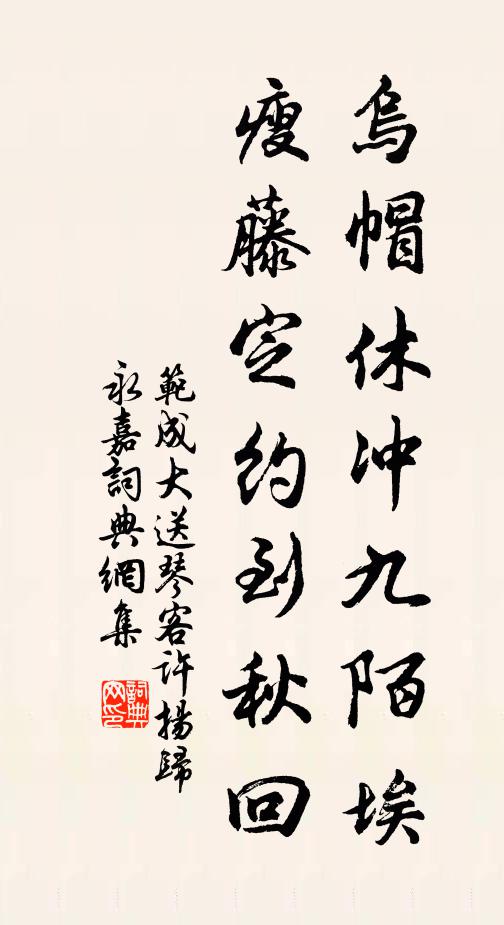 烏帽休冲九陌埃
瘦藤定約到秋回
範成大送琴客許揚歸
永嘉詞典網集
詞典
网印